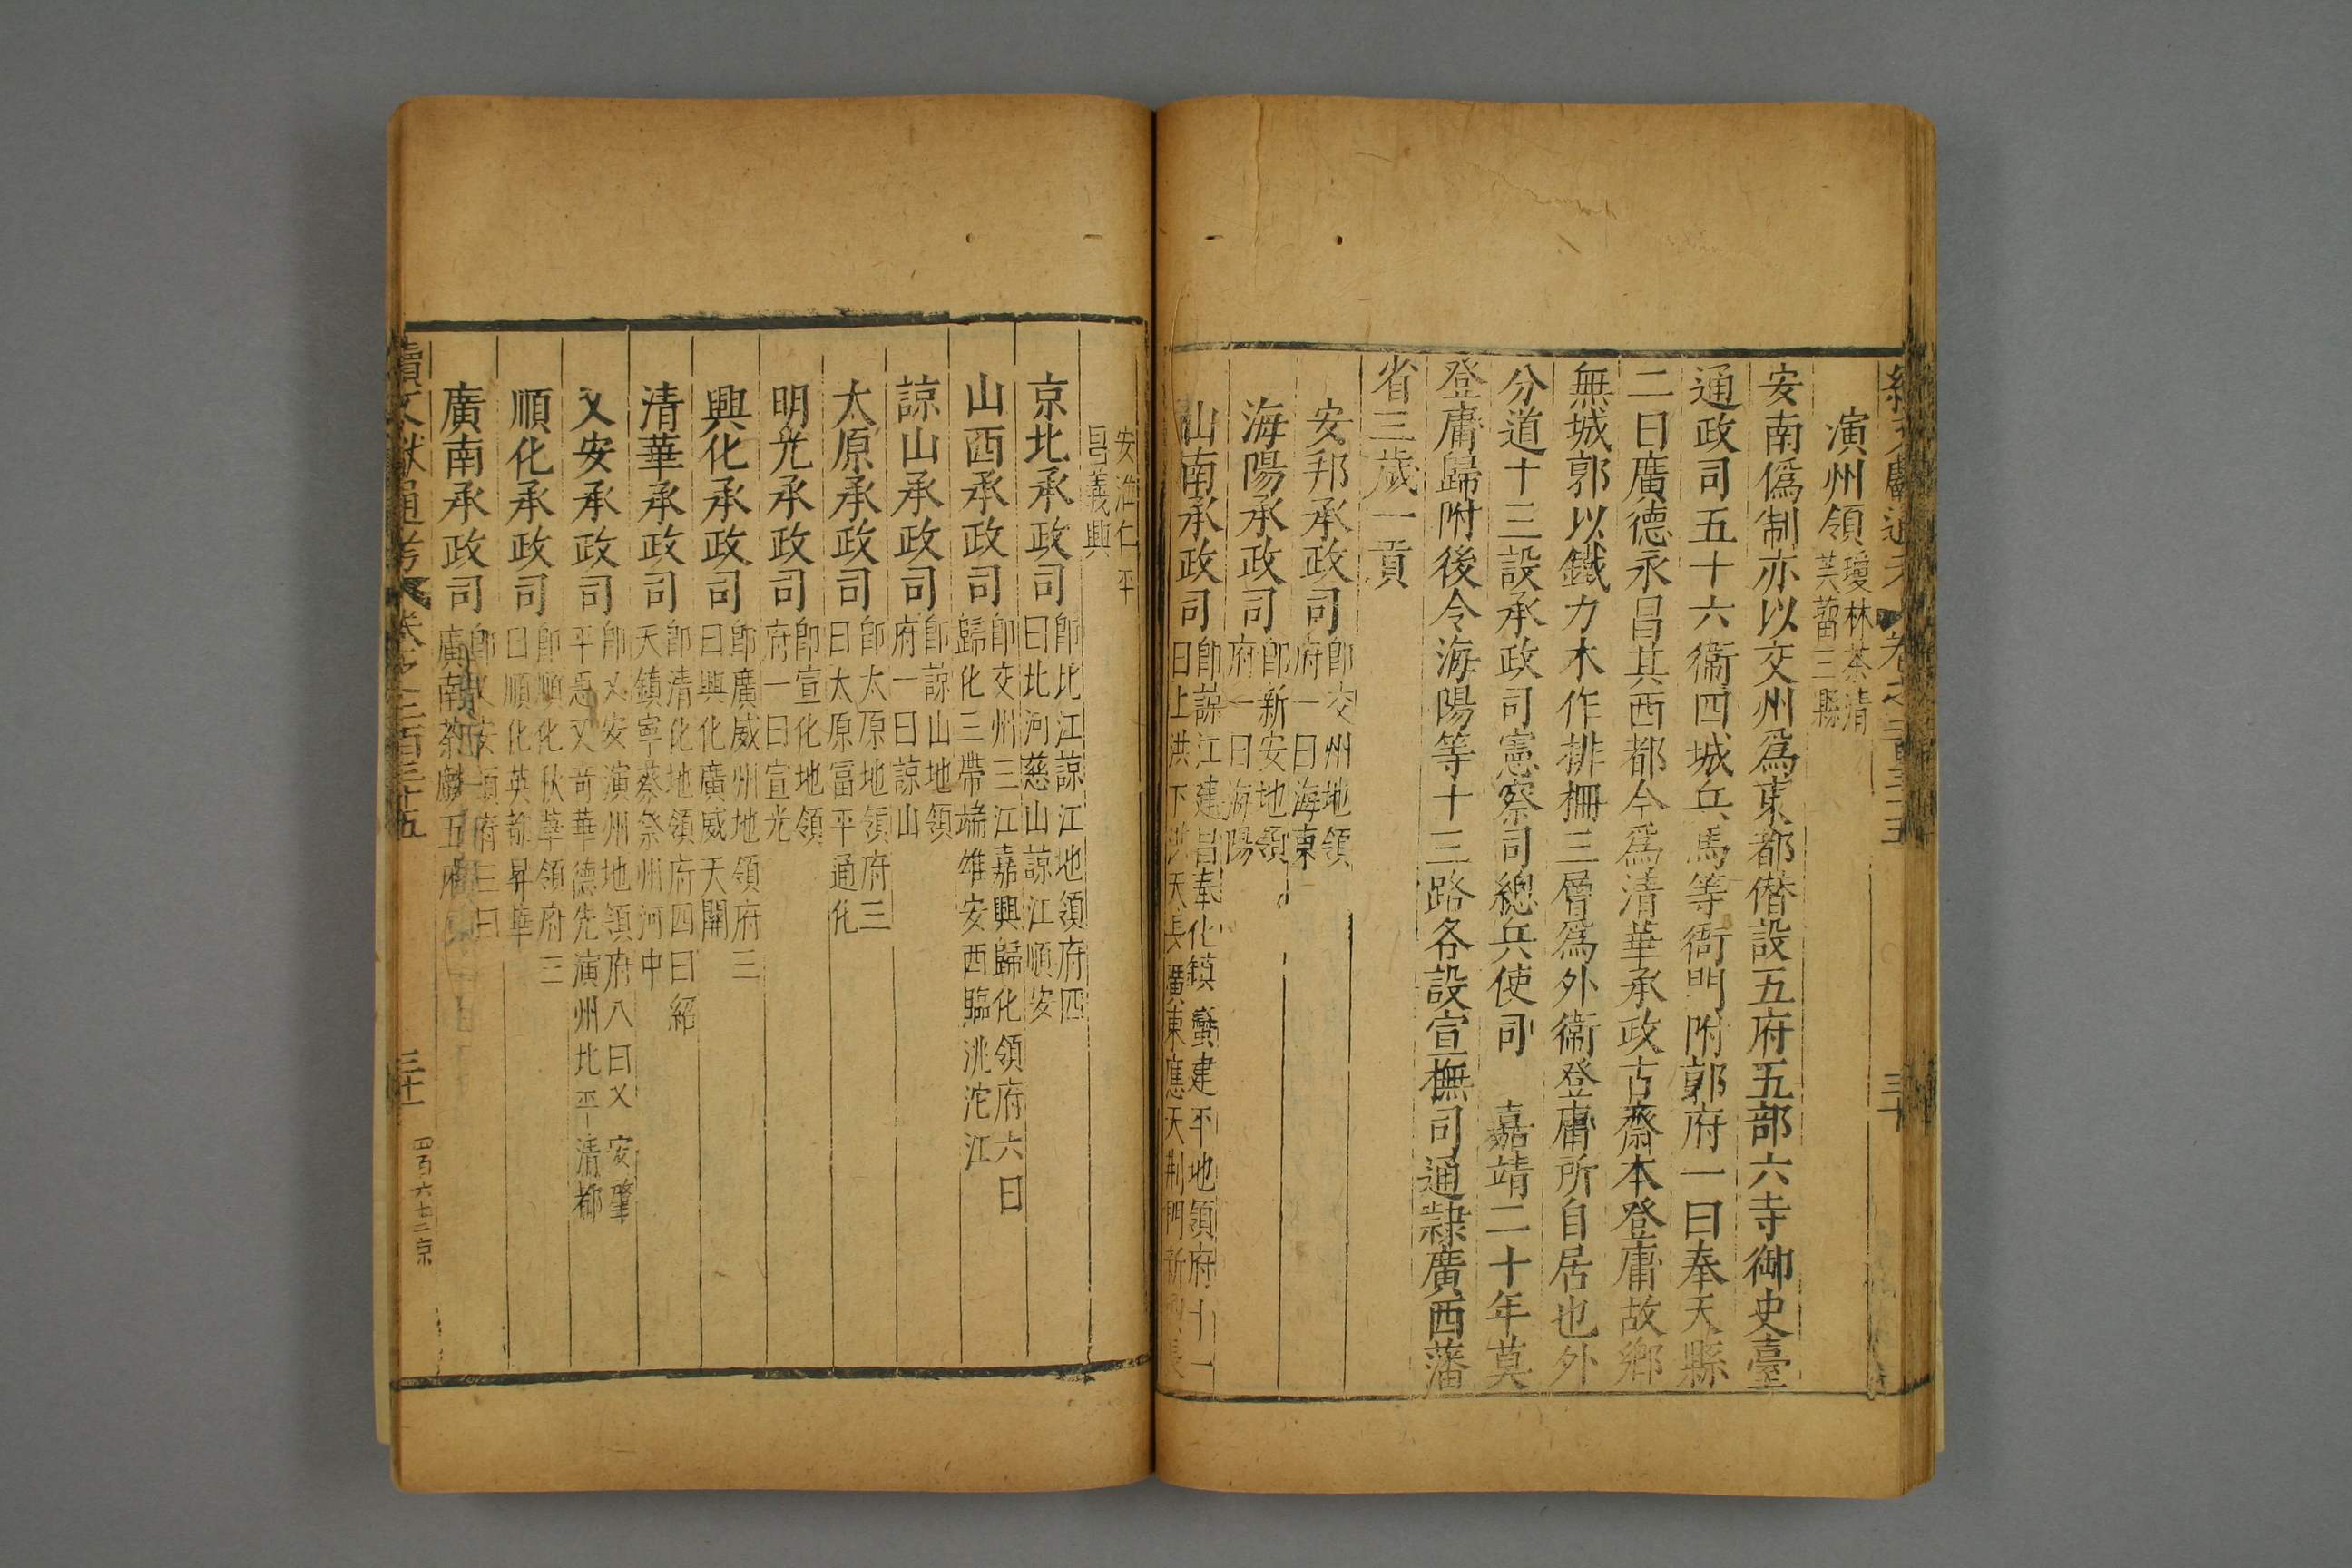 演州領瓊林茶清
芙蒥三縣
安南僞制亦以交州爲東都僭設五府五部六寺御史臺
通政司五十六衞四城兵馬等衙門附郭府一曰奉天縣
二曰廣德永昌其西都今爲清華承政古齋本登庸故鄉
無城郭以鐵力木作排柵三層爲外衞登庸所自居也外
分道十三設承政司憲察司總兵使司 嘉靖二十年莫
登庸歸附後令海陽等十三路各設宣撫司通隸廣西藩
省三歲一貢
安邦承政司即交州地領
府一曰海東
海陽承政司即新安地領
府一曰海陽
山南承政司即諒江建昌奉化鎮蠻建平地領府十一
曰上洪下洪天長廣東應天荆門新興長
安涖仁平
昌義興
京北承政司即北江諒江地領府四
曰北河慈山諒江順安
山西承政司即交州三江嘉興歸化領府六曰
歸化三帶端雄安西臨洮沱江
諒山承政司即諒山地領
府一曰諒山
太原承政司即太原地領府三
曰太原富平通化
明光承政司即宣化地領
府一曰宣光
興化承政司即廣威州地領府三
曰興化廣威天開
清華承政司即清化地領府四曰紹
天鎮寧蔡祭州河中
乂安承政司即乂安演州地領府八曰乂安肇
平思乂奇華德先演州北平清都
順化承政司即順化秋華領府三
曰順化英都昇華
廣南承政司即乂安頭府三曰
廣南茶麟五府
續文獻通考 卷之二百三十五 三十一 四百六七二京